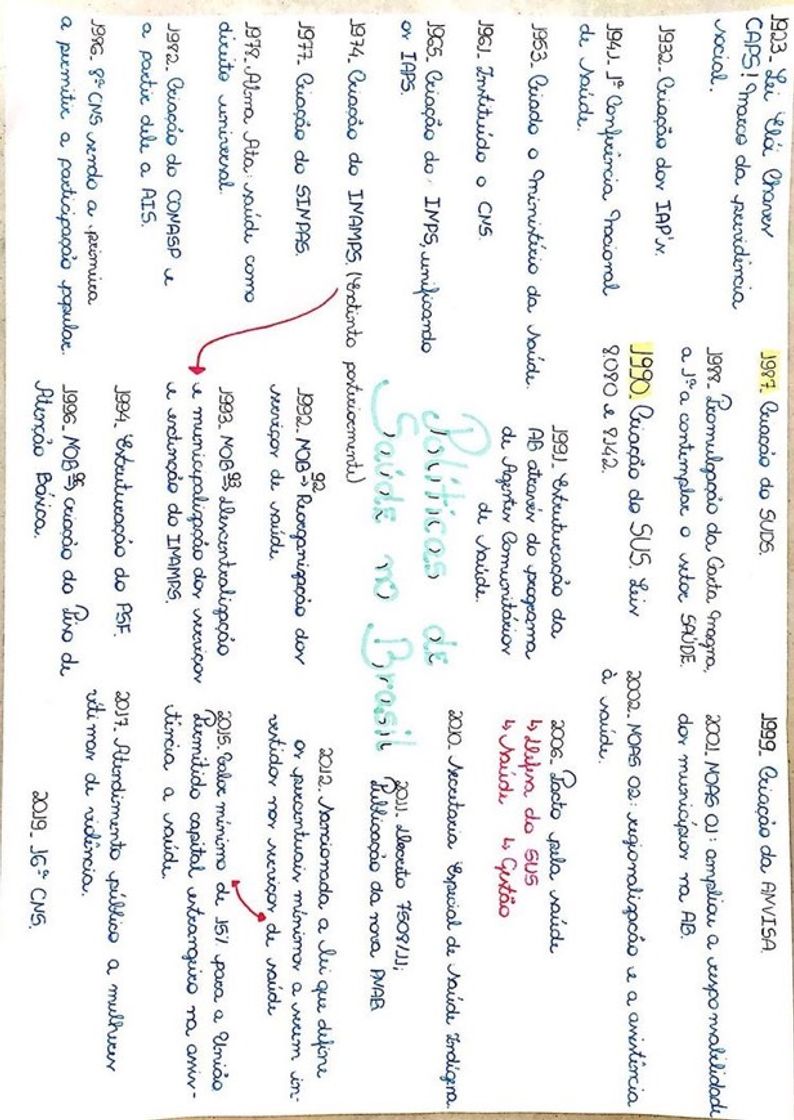 1923. Lei Elói Chaves
CAPS! Marco da previdência
social.
1932. Criação dos IAP's.
1941. 1ª Conferência Nacional
de Saúde.
1953. Criado o Ministério da Saúde.
1961. Instituído o CNS.
1965. Criação do IMPS, unificando
os IAPS.
1974. Criação do INAMPS, (Extinto posteriormente)
1977. Criação do SINPAS.
1978. Alma Ata: saúde como
direito universal.
1982. Criação do CONASP e
a partir dele a AIS.
1986. 8ª CNS sendo a primeira
a permitir a participação popular.
1987. Criação do SUDS.
1988. Promulgação da Carta Magna,
a 1ª a contemplar o setor SAÚDE.
1990. Criação do SUS. Leis
8.080 e 8.142.
1991. Estruturação da
AB através do programa
de Agentes Comunitários
de Saúde.
Políticas de
Saúde no Brasil
1992. NOB 92 ⇒ Reorganização dos
serviços de saúde.
1993. NOB 93 ⇒ descentralização
e municipalização dos serviços
e extinção do INAMPS.
1994. Estruturação do PSF.
1996. NOB 96 ⇒ criação do Piso de
Atenção Básica.
1999. Criação da ANVISA.
2001. NOAS 01: ampliou a responsabilidade
dos municípios na AB.
2002. NOAS 02: regionalização e a assistência
à saúde.
2006. Pacto pela saúde
↳ Defesa do SUS
↳ Saúde ↳ Gestão
2010. Secretaria Especial de Saúde Indígena.
2011. Decreto 7508/11;
Publicação da nova PNAB
2012. Sancionada a lei que define
os percentuais mínimos a serem in-
vestidos nos serviços de saúde
2015. Valor mínimo de 15% para a União
Permitido capital estrangeiro na assis-
tência a saúde.
2017. Atendimento público a mulheres
vítimas de violência.
2019. 16ª CNS.